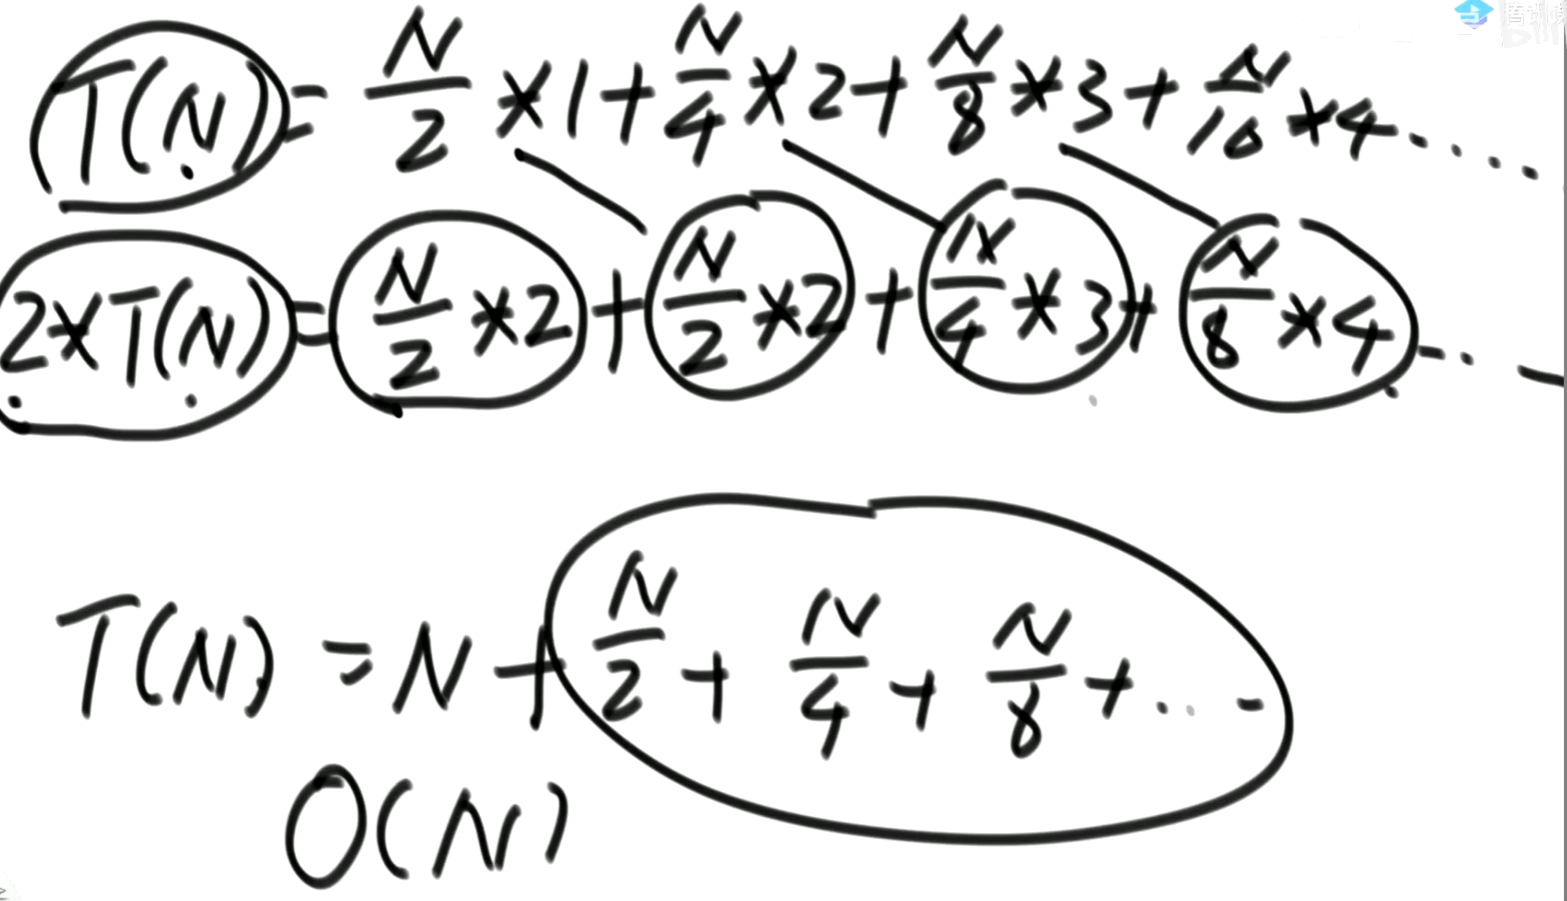 T(N) = N/2 × 1 + N/4 × 2 + N/8 × 3 + N/16 × 4 ......
2 × T(N) = N/2 × 2 + N/2 × 2 + N/4 × 3 + N/8 × 4 ...
T(N) = N + N/2 + N/4 + N/8 + ...
O(N)